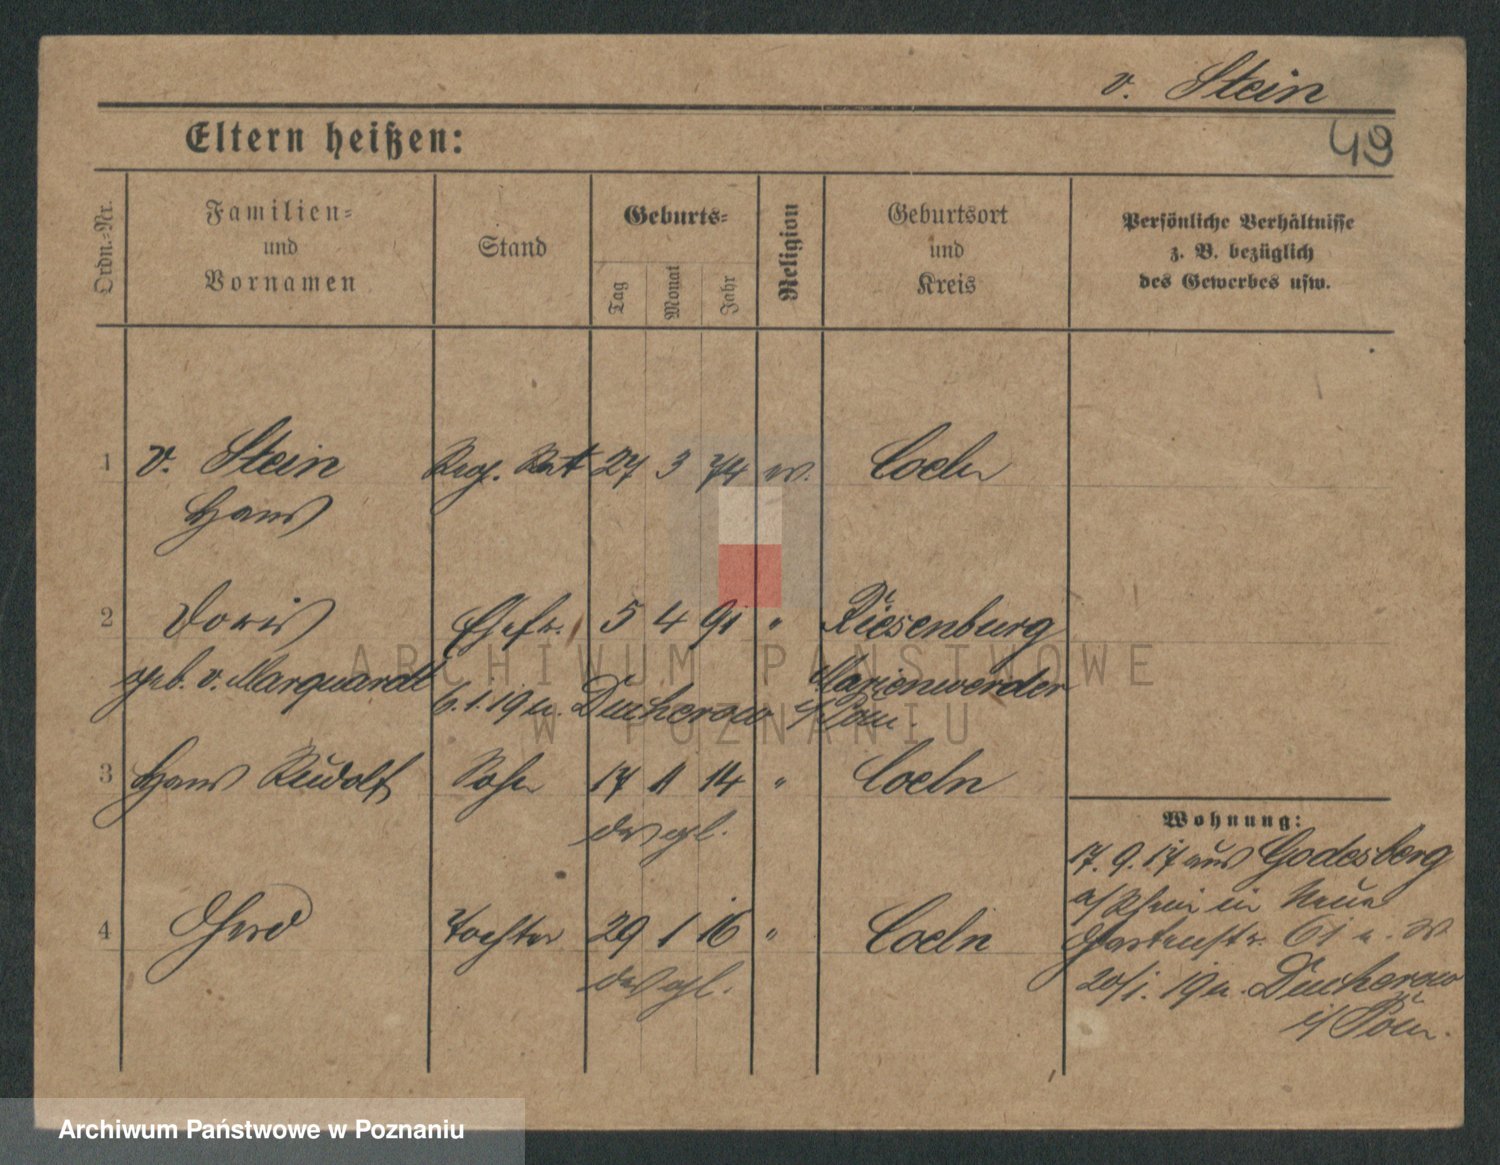 v. Stein
49
Eltern heißen:
Ordn.-Nr.
Familien-
und
Vornamen
Stand
Geburts-
Tag
Monat
Jahr
Religion
Geburtsort
und
Kreis
Persönliche Verhältnisse
z. B. bezüglich
des Gewerbes usw.
1 v. Stein Reg. Rat 27 3 74 ev. Coeln
Hans
2 Doris Ehefr. 5 4 91 " Riesenburg
geb. v. Marquardt Marienwerder
6.1.19 n. Ducherow i/Pom.
3 Hans Rudolf Sohn 17 11 14 " Coeln
desgl.
4 Gerd Tochter 29 1 16 " Coeln
desgl.
Wohnung:
17. 9. 17 aus Godesberg
a/Rhein in Neue
Gartenstr. 61
20/1. 19 n. Ducherow
i/ Pom.
ARCHIWUM PAŃSTWOWE
W POZNANIU
Archiwum Państwowe w Poznaniu